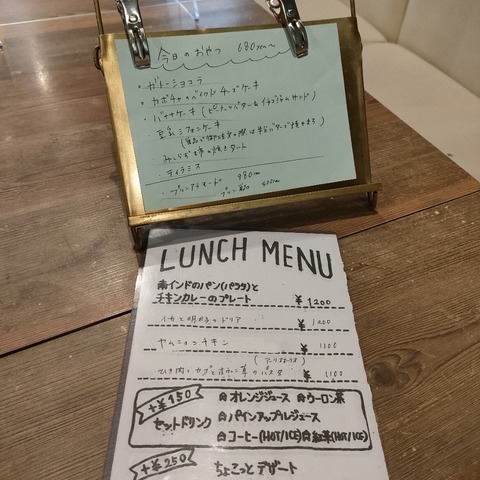 今日のおやつ 680yen〜
・ガトーショコラ
・カボチャのベイクドチーズケーキ
・バナナケーキ(ピーナッツバター&イチゴジャムサンド)
豆乳シフォンケーキ
ティラミス
・プリンアラモード 980yen
プリン単品
LUNCH MENU
南インドのパン(パロタ)と
チキンカレーのプレート ¥1200
イカと明太子のドリア ¥1200
ヤムニョンチキン ¥1100
ひき肉とカブとほうれん草のパスタ ¥1100
+¥150
セットドリンク
オレンジジュース ウーロン茶
パインアップルジュース
コーヒー(HOT/ICE) 紅茶(HOT/ICE)
+¥250 ちょこっとデザート